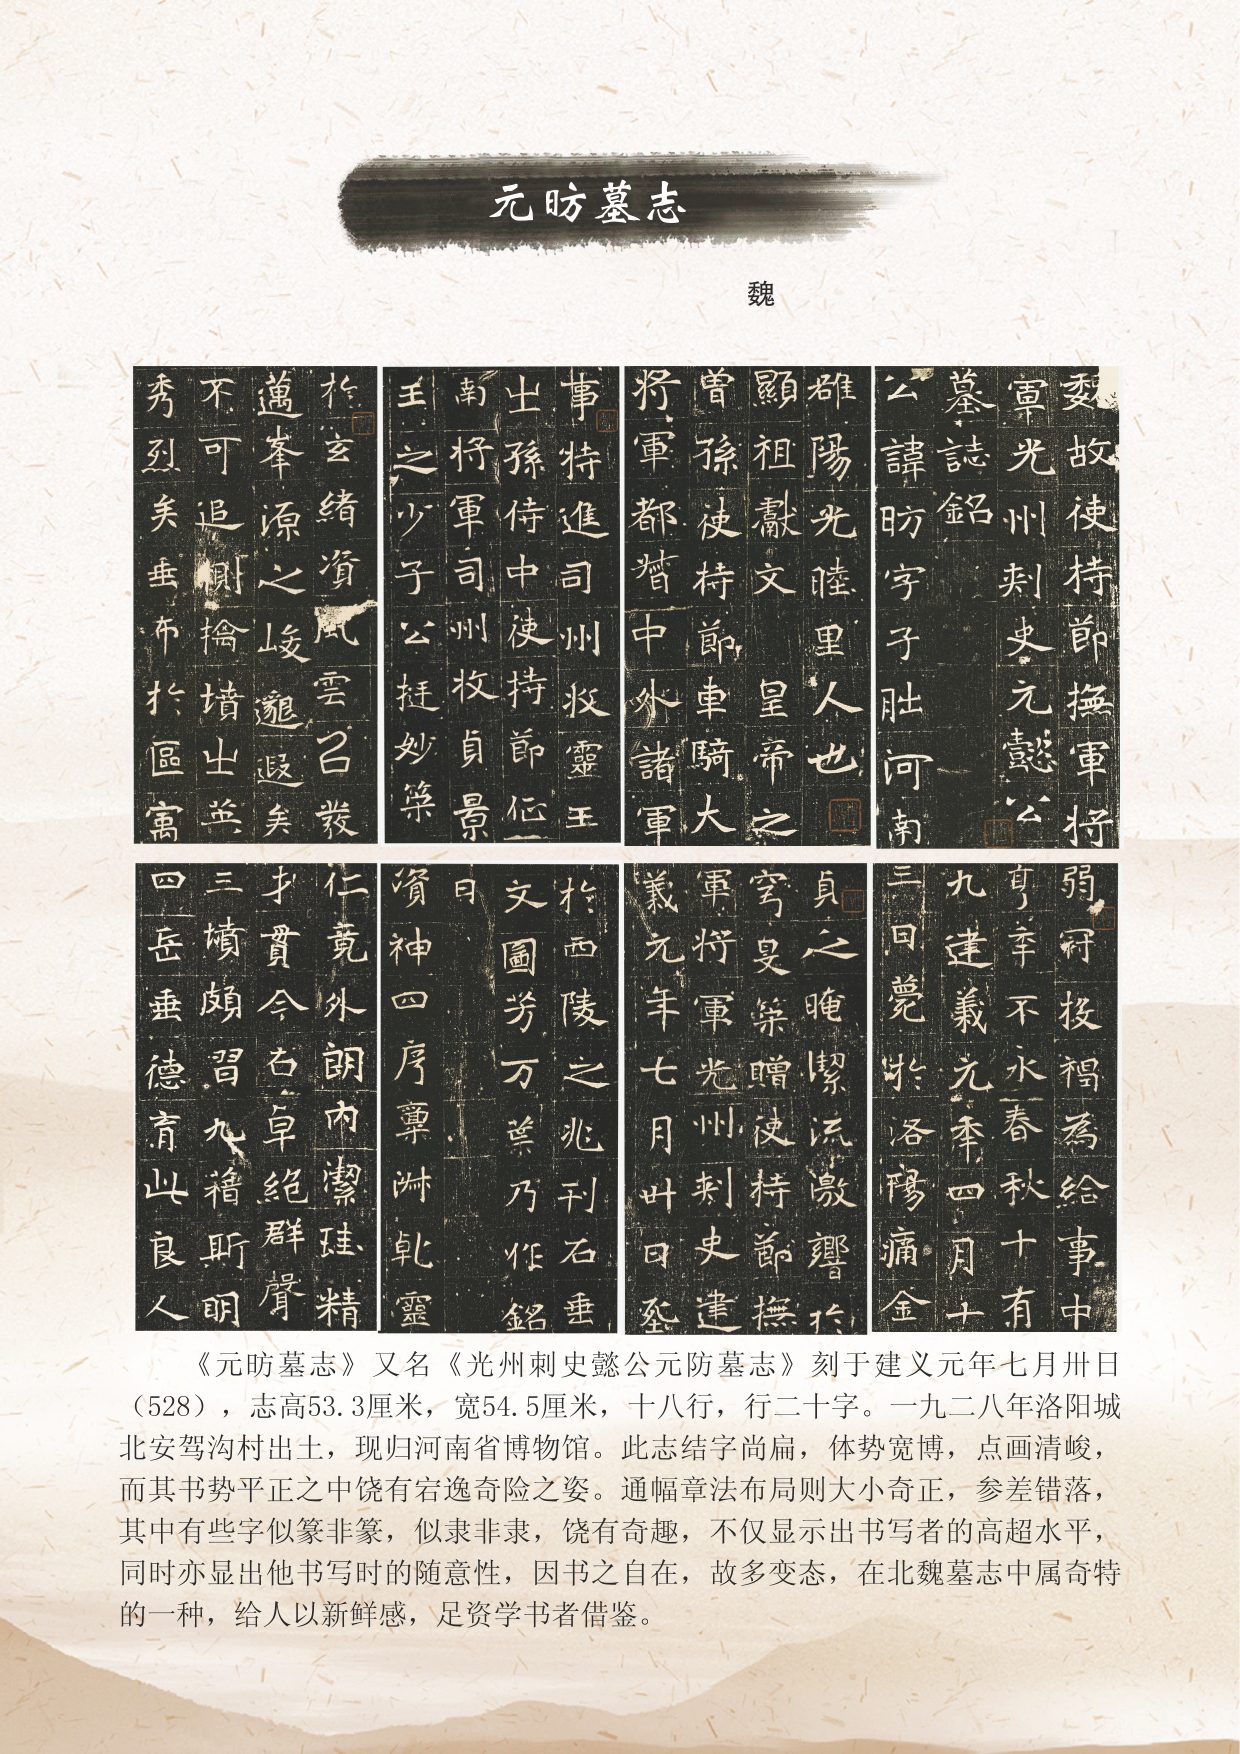 元昉墓志
魏
魏故使持節撫軍將
軍光州刾史元懿公
墓誌銘
公諱昉字子肚河南
雒陽光睦里人也
顯祖獻文皇帝之
曽孫使持節車騎大
將軍都督中外諸軍
事特進司州牧靈王
出孫侍中使持節征
南將軍司州牧貞景
王之少子公挺妙築
於玄緒資風雲召发
邁峯源之峻邈遐矣
不可追測擒墳出英
秀烈矣垂布於區寓
弱冠投褐為給事中
年不永春秋十有
九建義元年四月十
三日薨於洛陽痛金
貞之晻潔流激響於
穹旻築贈使持節撫
軍將軍光州刾史建
義元年七月卅日
於西陵之兆刊石垂
文圖芳万葉乃作銘
曰
資神四序稟淋乹靈
仁竟外朗內潔珪精
才貫今右卓絕群聲
三墳頗習九斯明
四岳垂德育此良人
《元昉墓志》又名《光州刺史懿公元防墓志》刻于建义元年七月卅日
（528），志高53.3厘米，宽54.5厘米，十八行，行二十字。一九二八年洛阳城
北安驾沟村出土，现归河南省博物馆。此志结字尚扁，体势宽博，点画清峻，
而其书势平正之中饶有宕逸奇险之姿。通幅章法布局则大小奇正，参差错落，
其中有些字似篆非篆，似隶非隶，饶有奇趣，不仅显示出书写者的高超水平，
同时亦显出他书写时的随意性，因书之自在，故多变态，在北魏墓志中属奇特
的一种，给人以新鲜感，足资学书者借鉴。